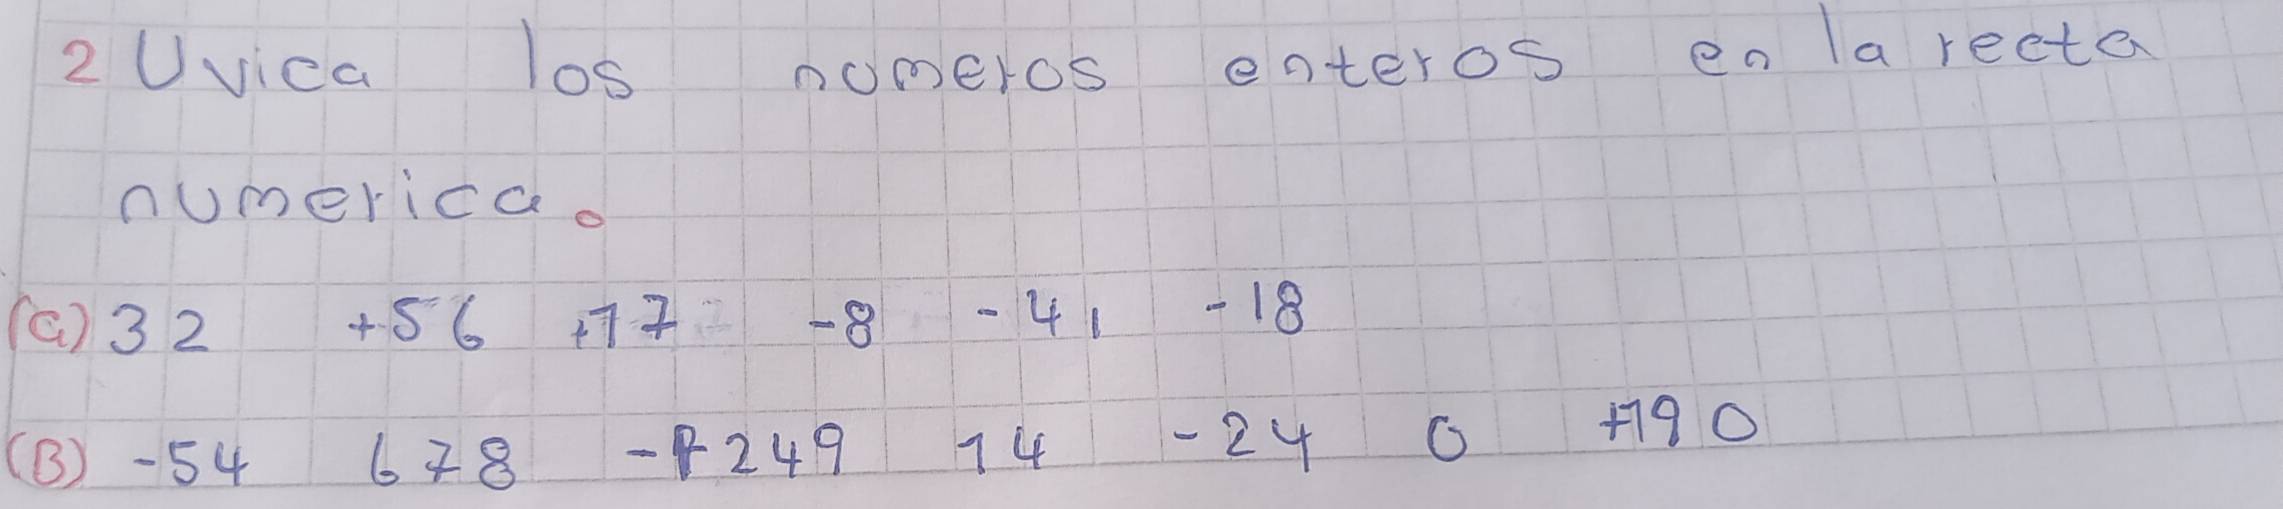 2 Uvica los numeros enteros en la recta
numerica.
(a) 32 +56 +17 -8 -41 -18
(B) -54 678 -+249 14 -24 0 +190